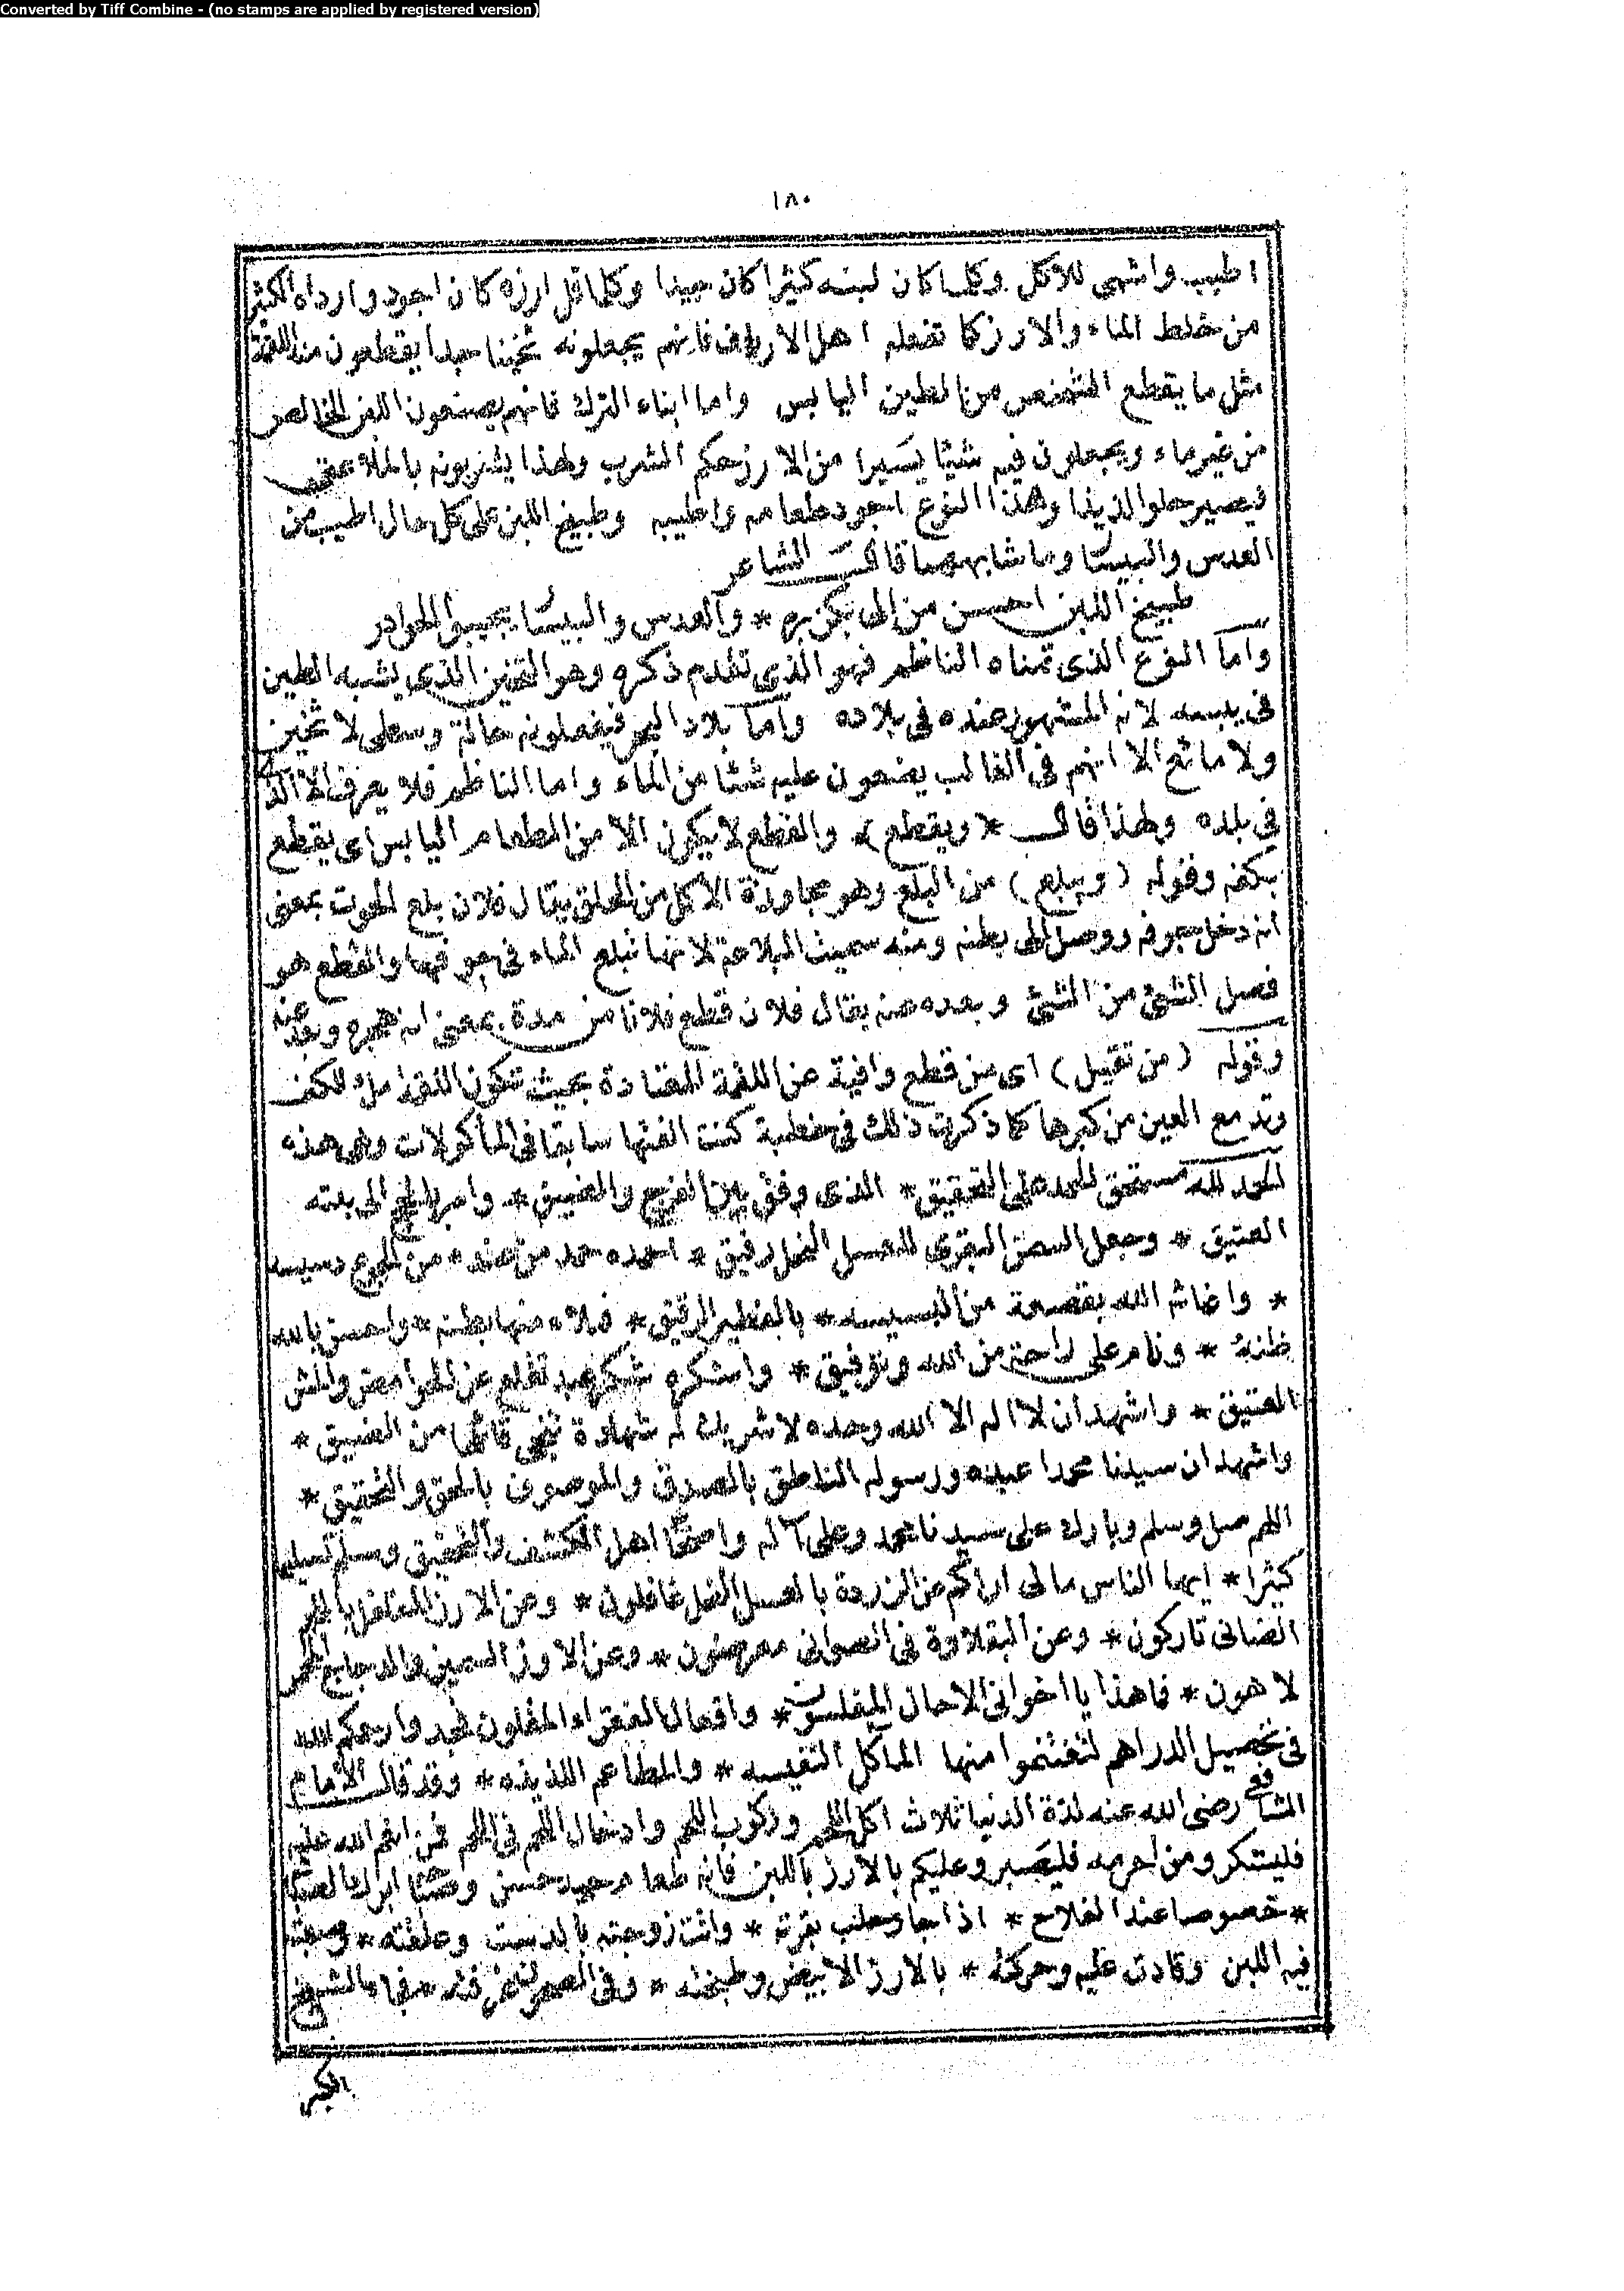 Converted by Tiff Combine - (no stamps are applied by registered version)
١٨٠
اطيب واشهى للاكل وكلما كان لبنه كثيرا كان جيدا وكلما قل ارزه كان اجود وارداه الكثير
من خلط الماء والارز كما تفعله اهل الارياف فانهم يجعلونه ثخينا جيدا يقطعون منه اللقمة
مثل ما يقطع الشخص من الطين اليابس واما ابناء الترك فانهم يصنعون اللبن الخالص
من غير ماء ويجعلون فيه شيئا يسيرا من الارز حكم الشرب ولهذا يشربونه بالملاعق
فيصير حلوا لذيذا وهذا النوع اجود طعامه واطيبه وطبيخ اللبن على كل حال اطيب من
العدس والبيسار وما شابههما قال الشاعر
طبيخ اللبن احسن من الى بكزبره * والعدس والبيسار يجيبوا
واما النوع الذى تمناه الناظم فهو الذى تقدم ذكره وهو الثخين الذى يشبه الطين
فى يبسه لانه المشهور عنده فى بلاده واما بلاد البحر فيفعلونه حالة وسطى لا ثخين
ولا مائع الا انهم فى الغالب يضعون عليه شئا من الماء واما الناظم فلا يعرف الا الذى
فى بلده ولهذا قال * (ويقطع) * والقطع لا يكون الا من الطعام اليابس اى يقطع
بكفه وقوله (ويبلع) من البلع وهو مجاوزة الاكل من الحلق يقال فلان بلع الحوت بمعنى
انه دخل جوفه ووصل الى بطنه ومنه سميت البلاعة لانها تبلع الماء فى جوفها والقطع هو
فصل الشئ من الشئ وبعده عنه يقال فلان قطع فلانا من مدة بمعنى انه هجره وبعد عنه
وقوله (من تقيل) اى من قطع وافية عن اللقمة المعتادة بحيث تكون اللقمة ملء الكف
وتدمع العين من كبرها كما ذكرت ذلك فى خطبة كنت الفتها سابقا فى المأكولات وهى هذه
الحمد لله مستحق الحمد على التحقيق * الذى وفق بين الفرج والضيق * وامر بالحج الى بيته
العتيق * وجعل السمن البقرى للعسل النحل رفيق * احمده حمد من عنده من الجوع رسيسه
* واغاثه الله بقصعة من البسيسه * بالفطير الرقيق * فملاء منها بطنه * واحسن بالله
ظنه * ونام على راحة من الله وتوفيق * واشكره شكر عبد تقلع عن الحوامض والمش
العتيق * واشهد ان لا اله الا الله وحده لا شريك له شهادة تنجى قائلها من الضيق *
واشهد ان سيدنا محمدا عبده ورسوله الناطق بالصدق والموصوف بالحق والتحقيق *
اللهم صل وسلم وبارك على سيدنا محمد وعلى آله واصحابه اهل الكشف والتحقيق وسلم تسليما
كثيرا * ايها الناس ما لى اراكم عن الزردة بالعسل النحل غافلون * وعن الارز المفلفل باللحم
الضانى تاركون * وعن البقلاوة فى الصوانى معرضون * وعن الاوز السمين والدجاج المحمر
لاهون * فما هذا يا اخوانى الا حال المفلسون * وافعال الفقراء المقلون فجدوا رحمكم الله
فى تحصيل الدراهم لتغتنموا منها المآكل النفيسه * والمطاعم اللذيذه * وقد قال الامام
الشافعى رضى الله عنه لذة الدنيا ثلاث اكل اللحم وركوب اللحم وادخال اللحم فى اللحم فمن انعم الله عليه
فليشكر ومن احرمه فليصبر وعليكم بالارز باللبن فانه طعام جيد حسن
* خصوصا عند الفلاح * اذا جا وحلب بقرته * واتت زوجته بالدست وعلقته * وصبت
فيه اللبن وقادت عليه وحركته * بالارز الابيض وطبخته *